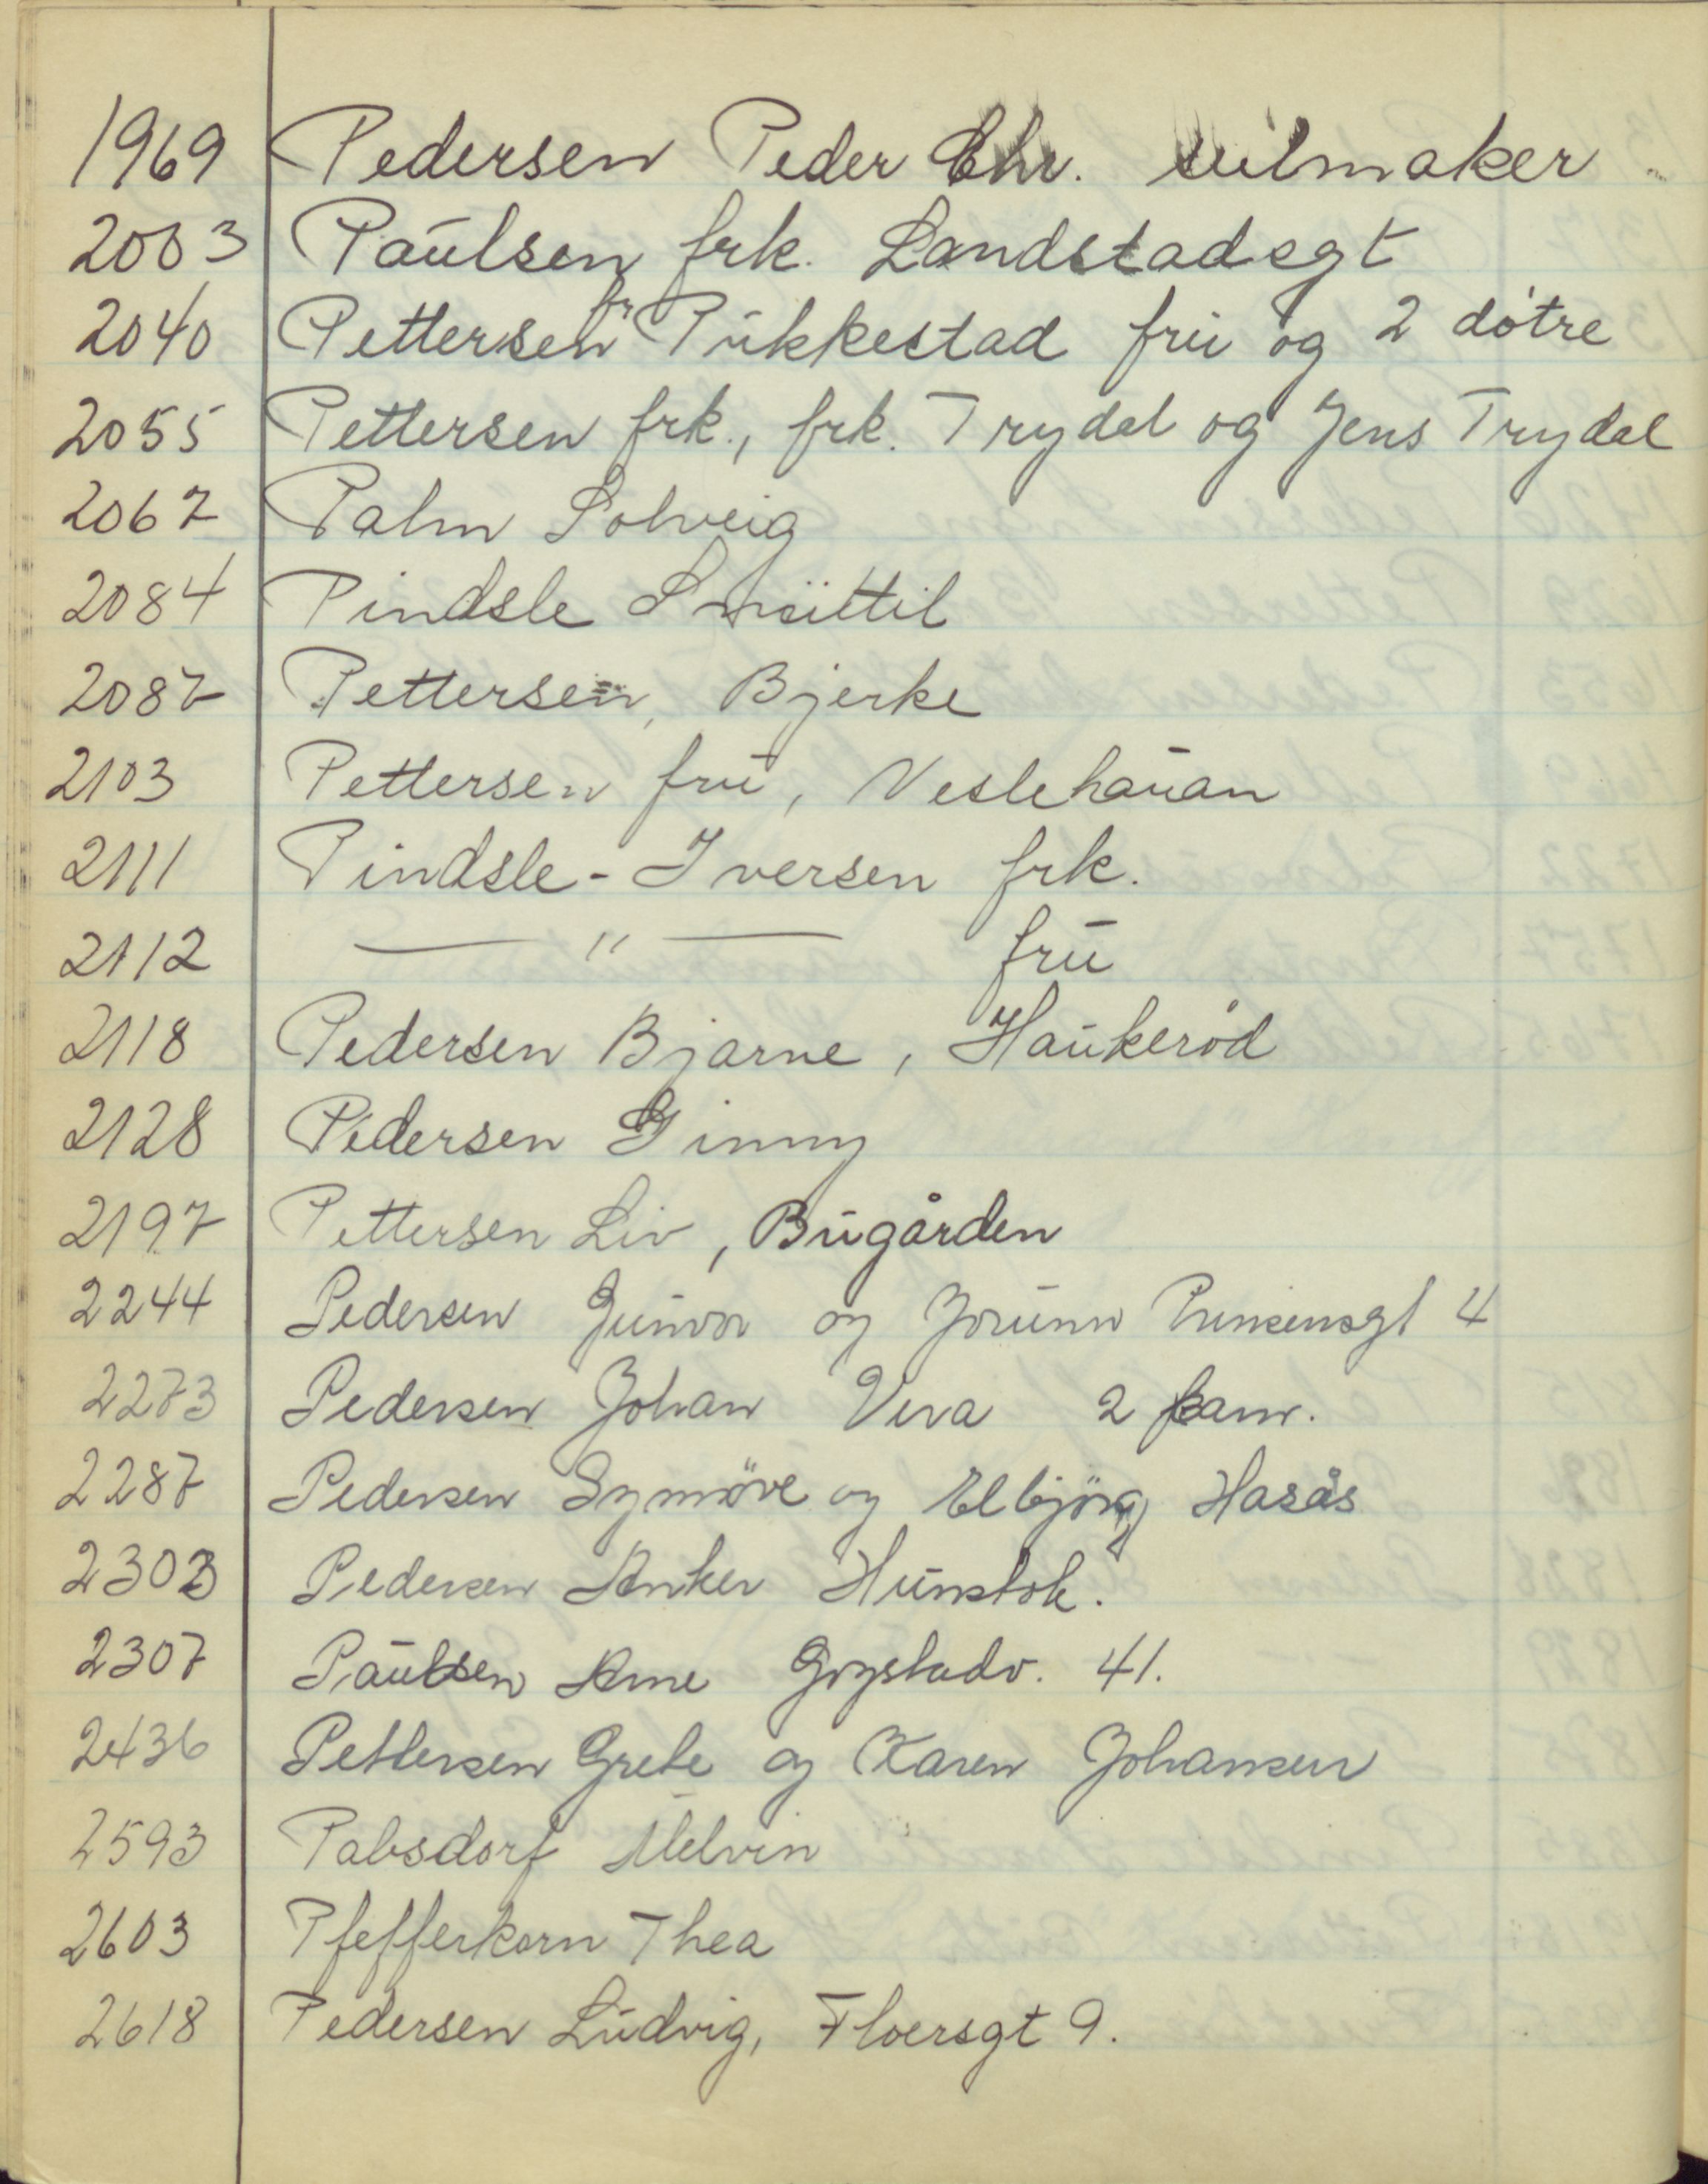 1969 Pedersen Peder Chr. seilmaker
2003 Paulsen frk. Landstadsgt
2040 Pettersen fr Pukkestad fru og 2 døtre
2055 Pettersen frk., frk. Trydal og Jens Trydal
2067 Palm Solveig
2084 Pindsle Smüttil
2087 Pettersen, Bjerke
2103 Pettersen fru, Veslehauan
2111 Pindsle - Iversen frk.
2112 — " — fru
2118 Pedersen Bjarne, Haukerød
2128 Pedersen Ginny
2197 Pettersen Liv, Bugården
2244 Pedersen Gunvor og Jorunn Prinsensgt 4
2273 Pedersen Johan Vera 2 kam.
2287 Pedersen Synnöve og Elbjörg Hasås
2303 Pedersen Anker Hunstok.
2307 Paulsen Arne Grystadv. 41.
2436 Pettersen Grete og Karen Johansen
2593 Pabsdorf Melvin
2603 Pfefferkorn Thea
2618 Pedersen Ludvig, Floersgt 9.